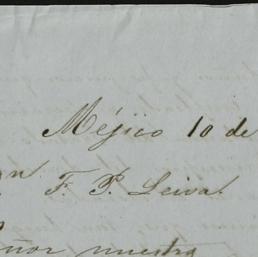 Méjico 10 de
n. F. P. Leiva.
eñor nuestro